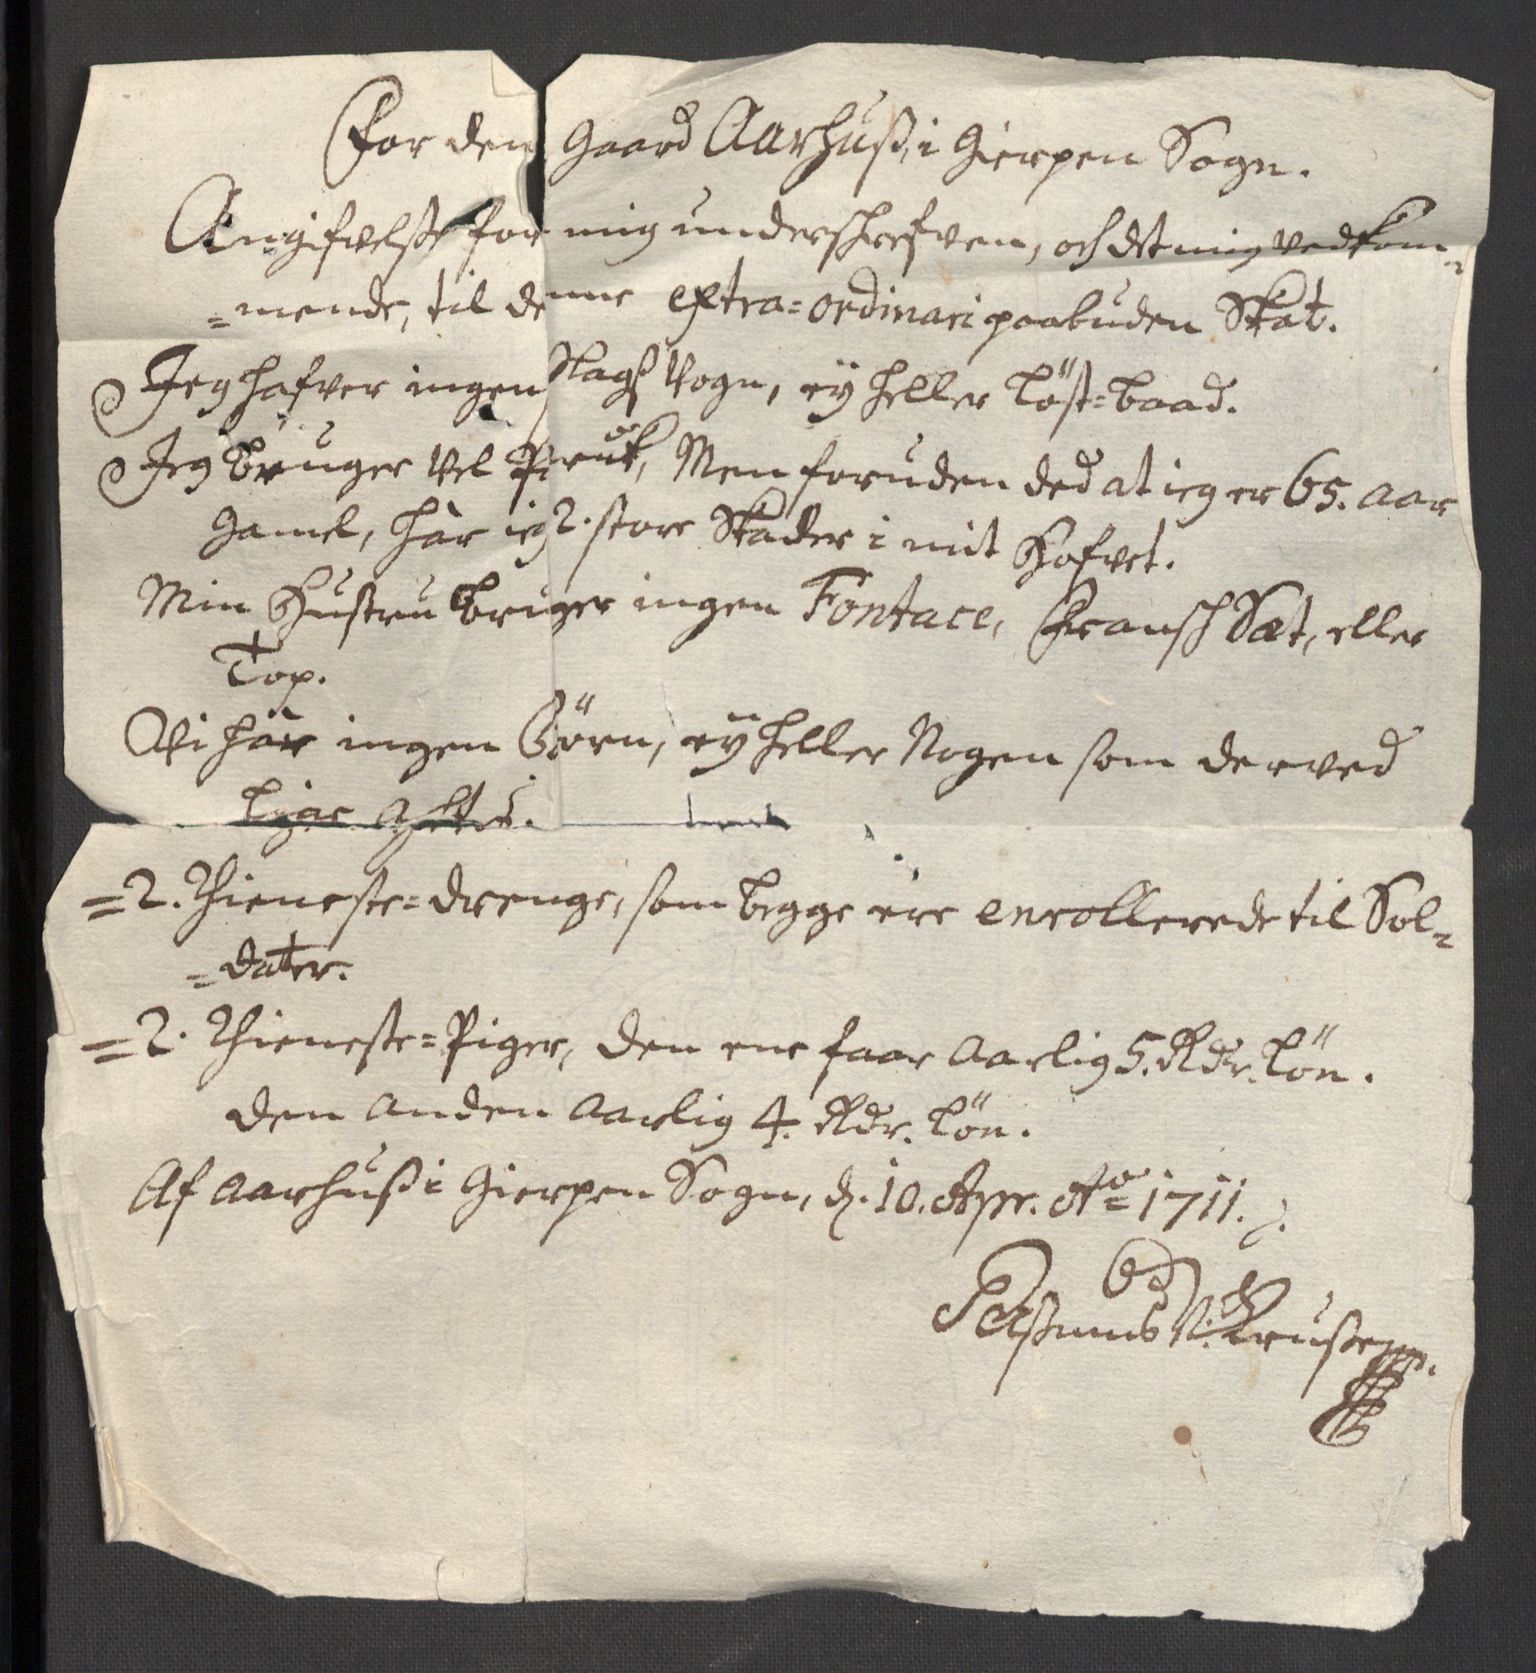 For den Gaard Aarhuß, i Gierpen Sogn.
Angifvelße for mig underschrefven, och det mig vedkom-
=mende, til denne extra=ordinari paabuden Skat.
Jeg hafver ingen Slagß Vogn, eÿ heller Löst=baad.
Jeg bruger vel Peruk, Men foruden ded at ieg er 65. aar
gamel, här ieg 2. store Skader i mit Hofvet.
Min Hustru bruger ingen Fontace, Fransch Sæt, eller
Top.
Vi här ingen Börn, eÿ heller Nogen som derved
=2. Thieneste=drenge, som begge ere enrollerede til Sol-
=dater.
=2. Thieneste=Piger, den ene faar Aarlig 5. Rdr. Lön.
den anden Aarlig 4. Rdr. Lön.
Af Aarhuß i Gierpen Sogn, d. 10. Apr. Ao 1711.